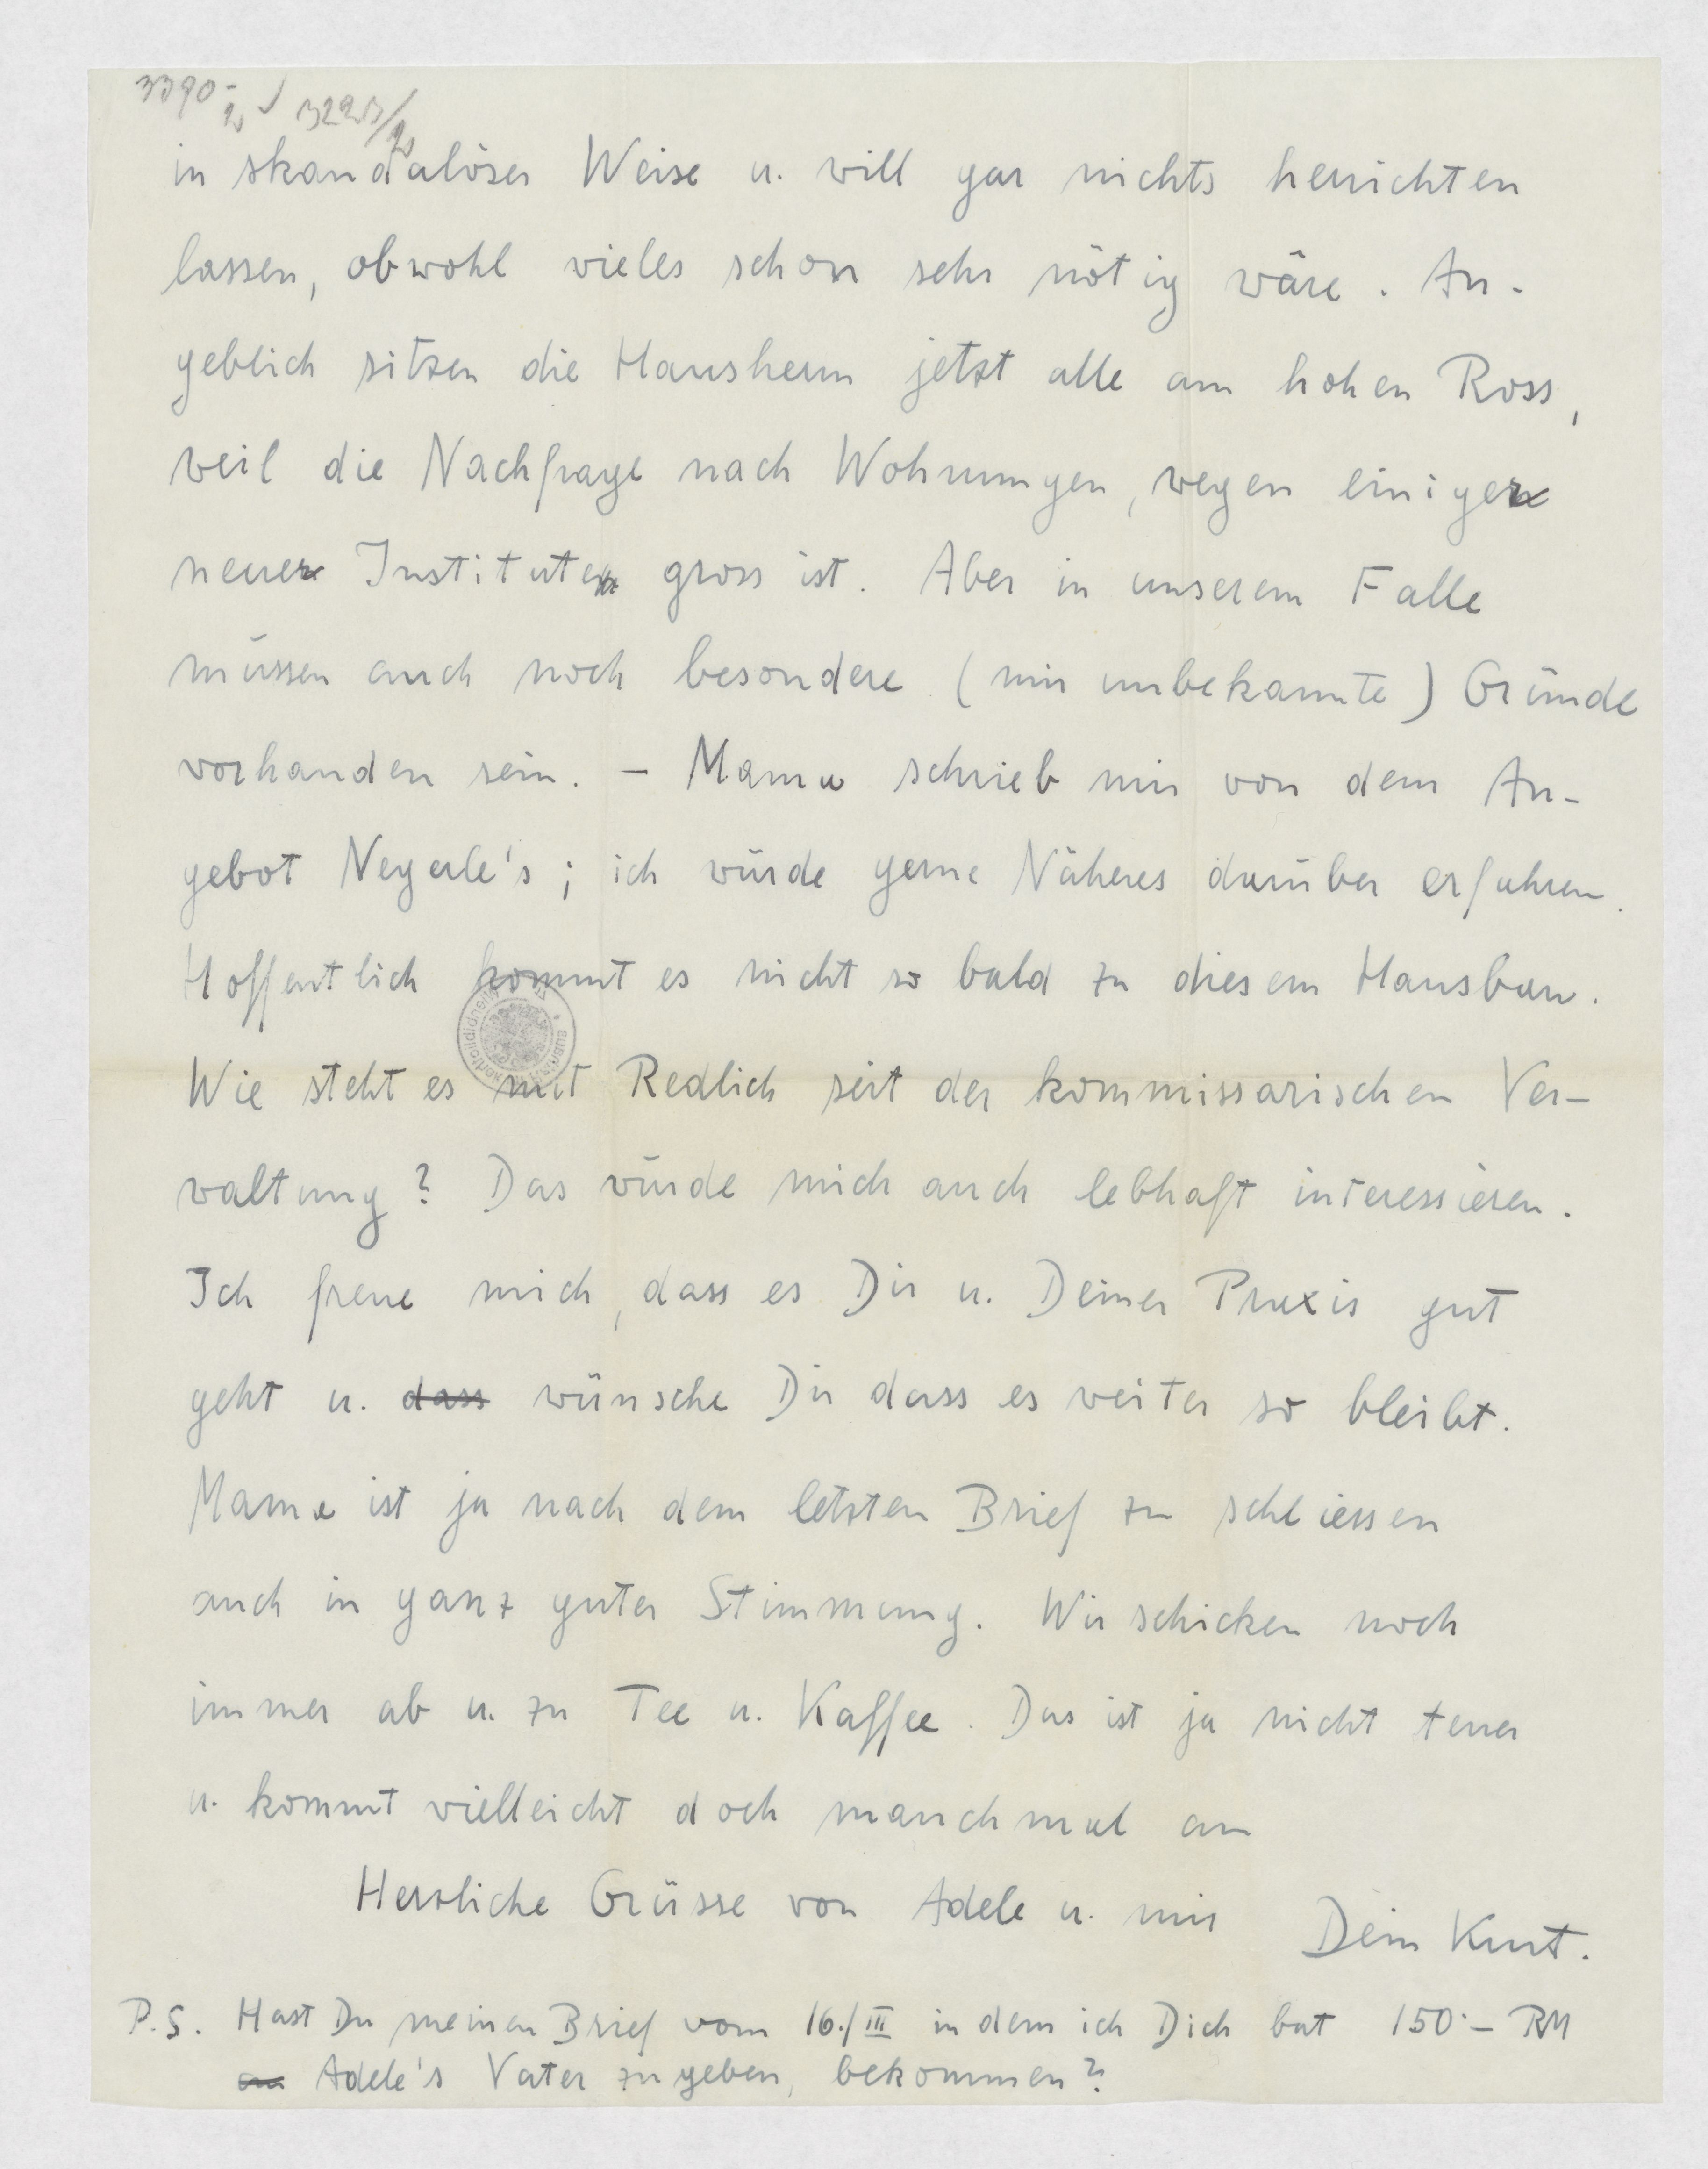 in skandalöser Weise u. will gar nichts herrichten
lassen, obwohl vieles schon sehr nötig wäre. An-
geblich sitzen die Hausherrn jetzt alle am hohen Ross,
weil die Nachfrage nach Wohnungen, wegen einiger
neuer Institute gross ist. Aber in unserem Falle
müssen auch noch besondere (mir unbekannte) Gründe
vorhanden sein. – Mama schrieb mir von dem An-
gebot Negerle's; ich würde gerne Näheres darüber erfahren.
Hoffentlich kommt es nicht so bald zu diesem Hausbau.
Wie steht es mit Redlich seit der kommissarischen Ver-
waltung? Das würde mich auch lebhaft interessieren.
Ich freue mich, dass es Dir u. Deiner Praxis gut
geht u. dass wünsche Dir dass es weiter so bleibt.
Mama ist ja nach dem letzten Brief zu schliessen
auch in ganz guter Stimmung. Wir schicken noch
immer ab u. zu Tee u. Kaffee. Das ist ja nicht teuer
u. kommt vielleicht doch manchmal an
Herzliche Grüsse von Adele u. mir Dein Kurt.
P.S. Hast Du meinen Brief vom 16./III in dem ich Dich bat 150·– RM
an Adele's Vater zu geben, bekommen?